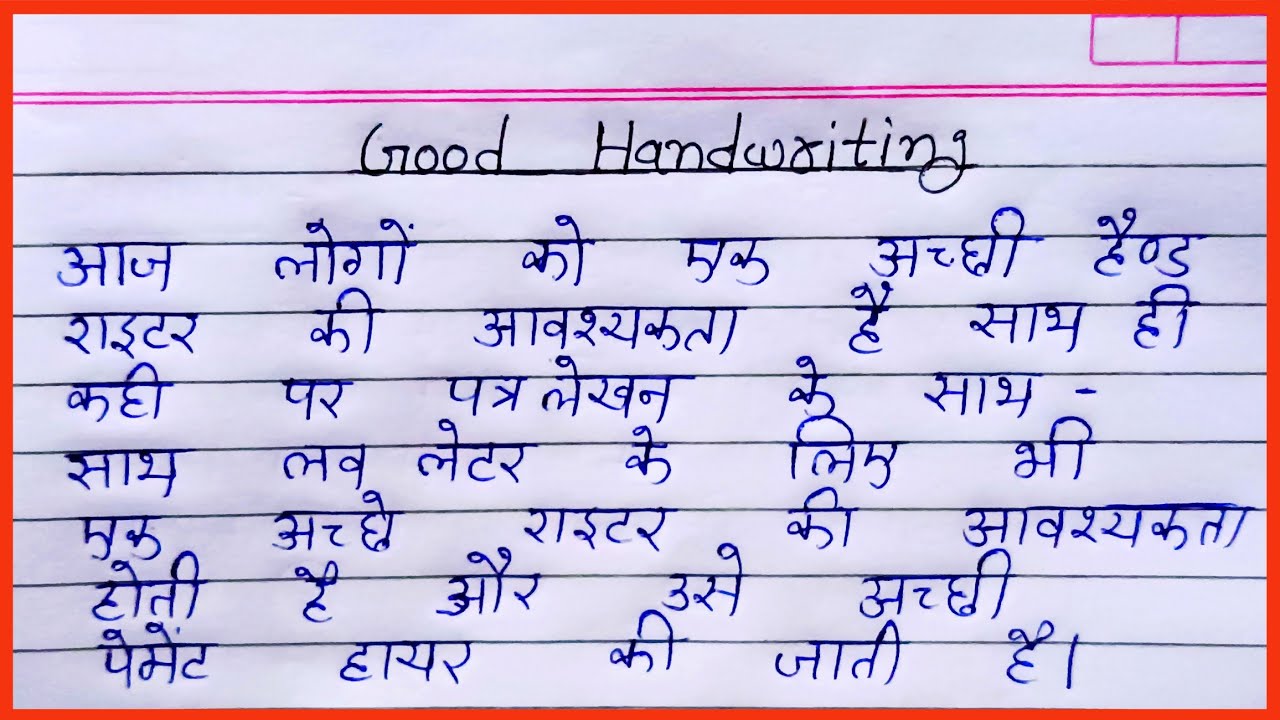 Good Handwriting
आज लोगों को एक अच्छी हैण्ड
राइटर की आवश्यकता है साथ ही
कही पर पत्र लेखन के साथ -
साथ लव लेटर के लिए भी
एक अच्छे राइटर की आवश्यकता
होती है और उसे अच्छी
पेमेंट हायर की जाती है।